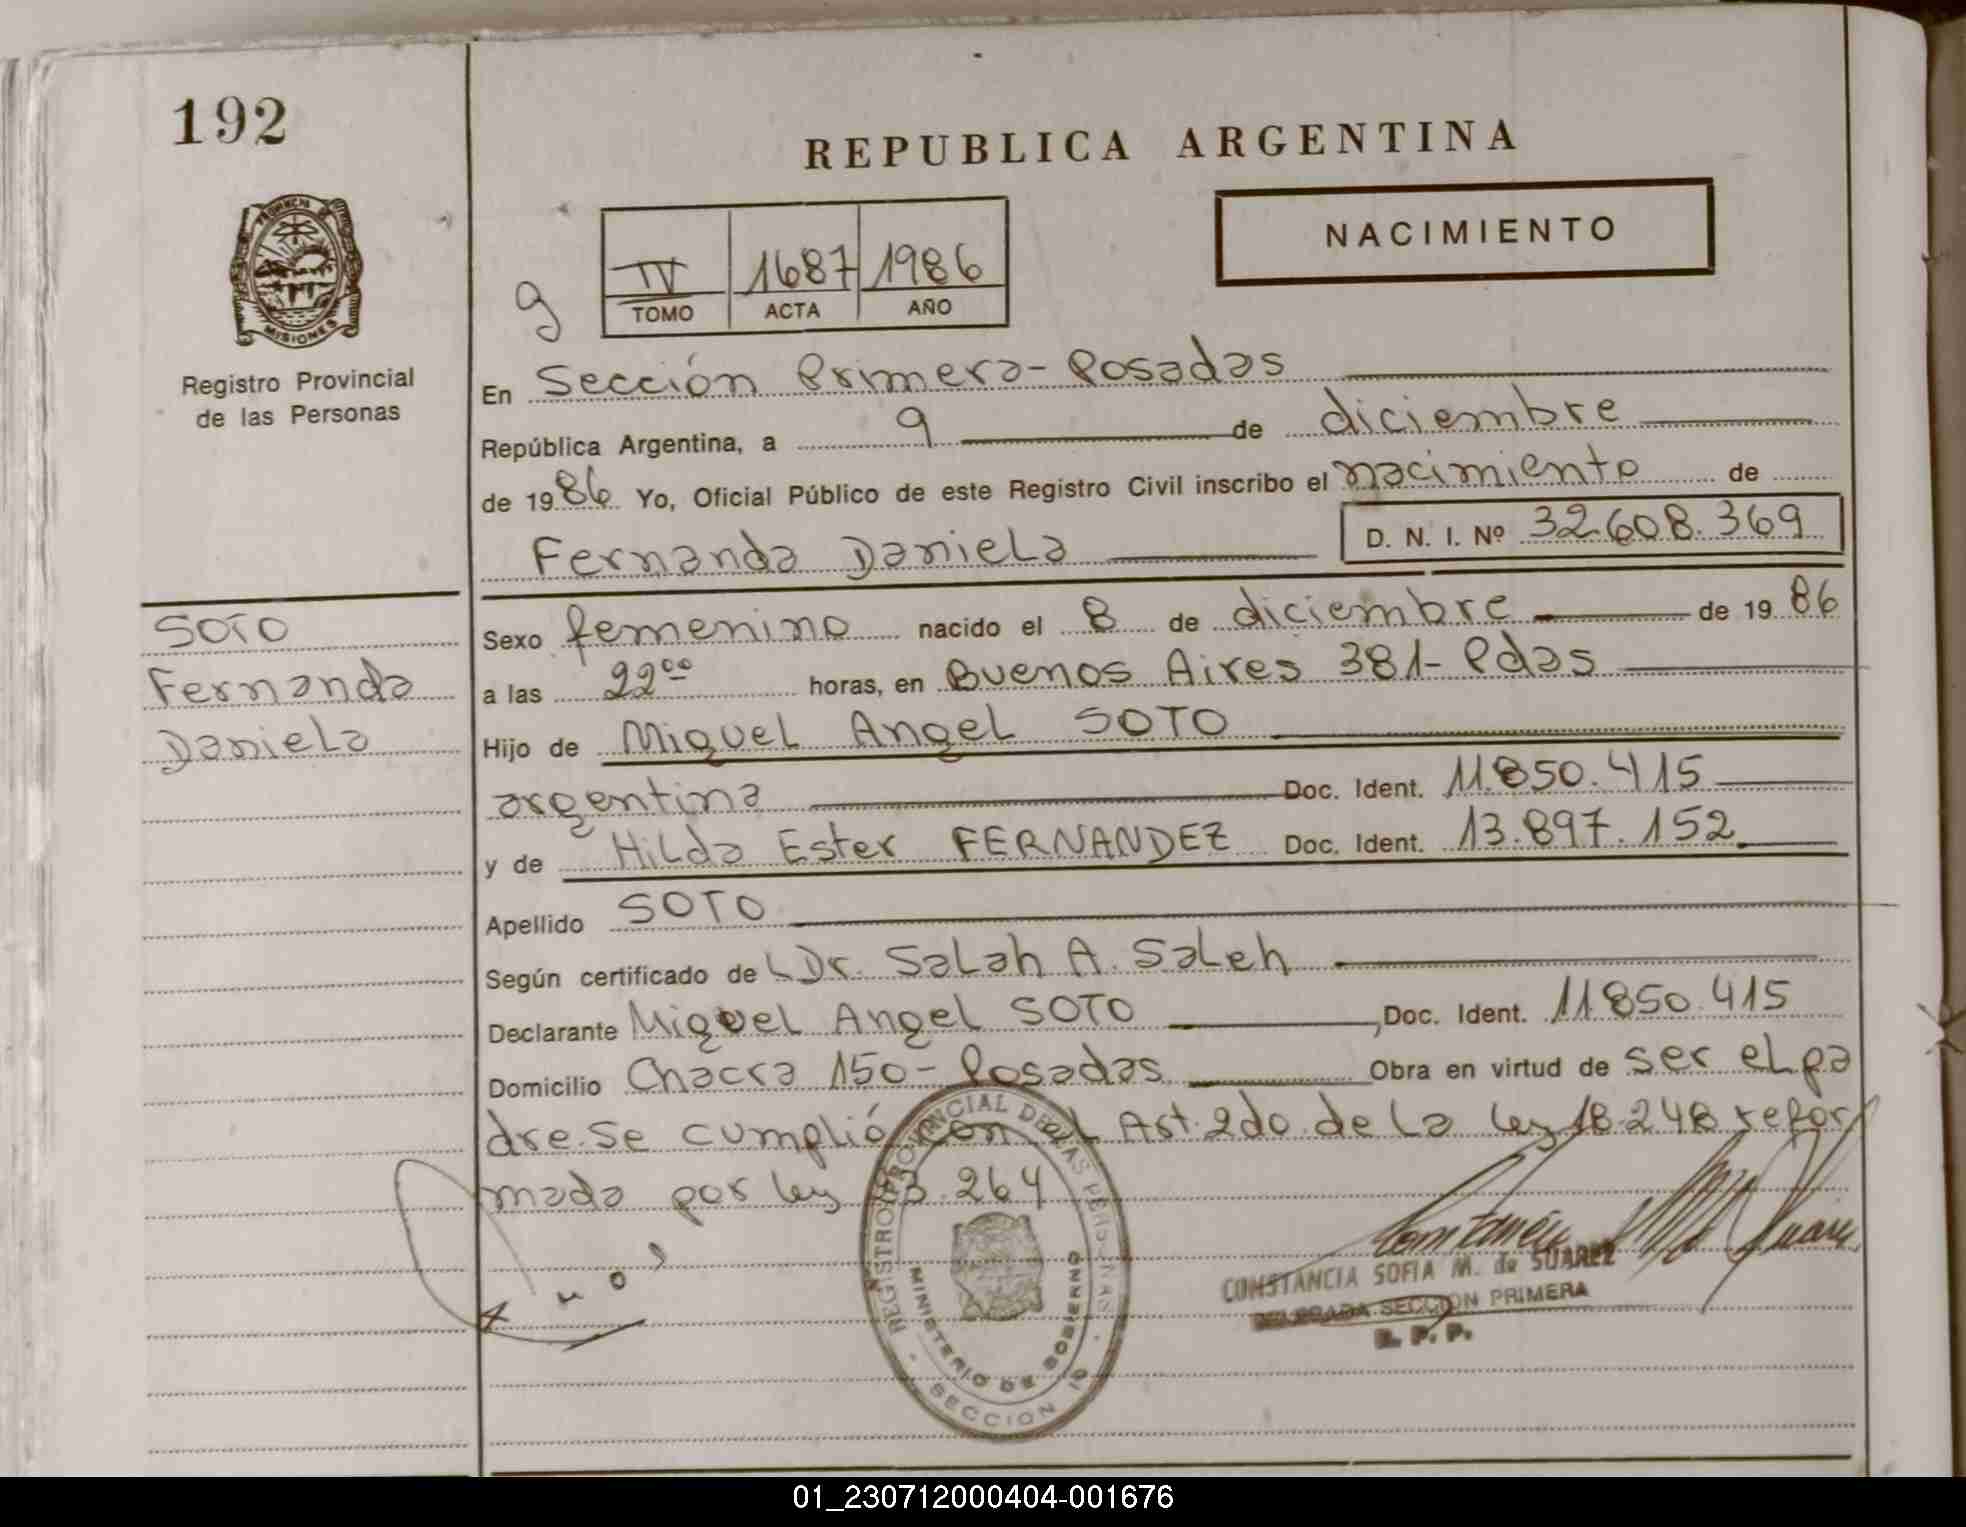 192
REPUBLICA ARGENTINA
NACIMIENTO
PROVINCIA DE
MISIONES
Registro Provincial
de las Personas
g
IV 1687 1986
TOMO ACTA AÑO
En Sección Primera - Posadas
República Argentina, a 9 de diciembre
de 1986 Yo, Oficial Público de este Registro Civil inscribo el nacimiento de
Fernanda Daniela D. N. I. Nº 32.608.369
SOTO
Fernanda
Daniela
Sexo femenino nacido el 8 de diciembre de 1986
a las 22⁰⁰ horas, en Buenos Aires 381- Pdas
Hijo de Miguel Angel SOTO
argentina Doc. Ident. 11.850.415
y de Hilda Ester FERNANDEZ Doc. Ident. 13.897.152
Apellido SOTO
Según certificado de Dr. Salah A. Saleh
Declarante Miguel Angel SOTO, Doc. Ident. 11850.415
Domicilio Chacra 150 - Posadas Obra en virtud de ser el pa
dre. Se cumplió con el Art. 2do. de la ley 18.248 refor
mada por ley 23.264
REGISTRO PROVINCIAL DE LAS PERSONAS
MINISTERIO DE GOBIERNO
SECCION 1a
CONSTANCIA SOFIA M. de SUAREZ
DELEGADA SECCION PRIMERA
R. P. P.
01_230712000404-001676